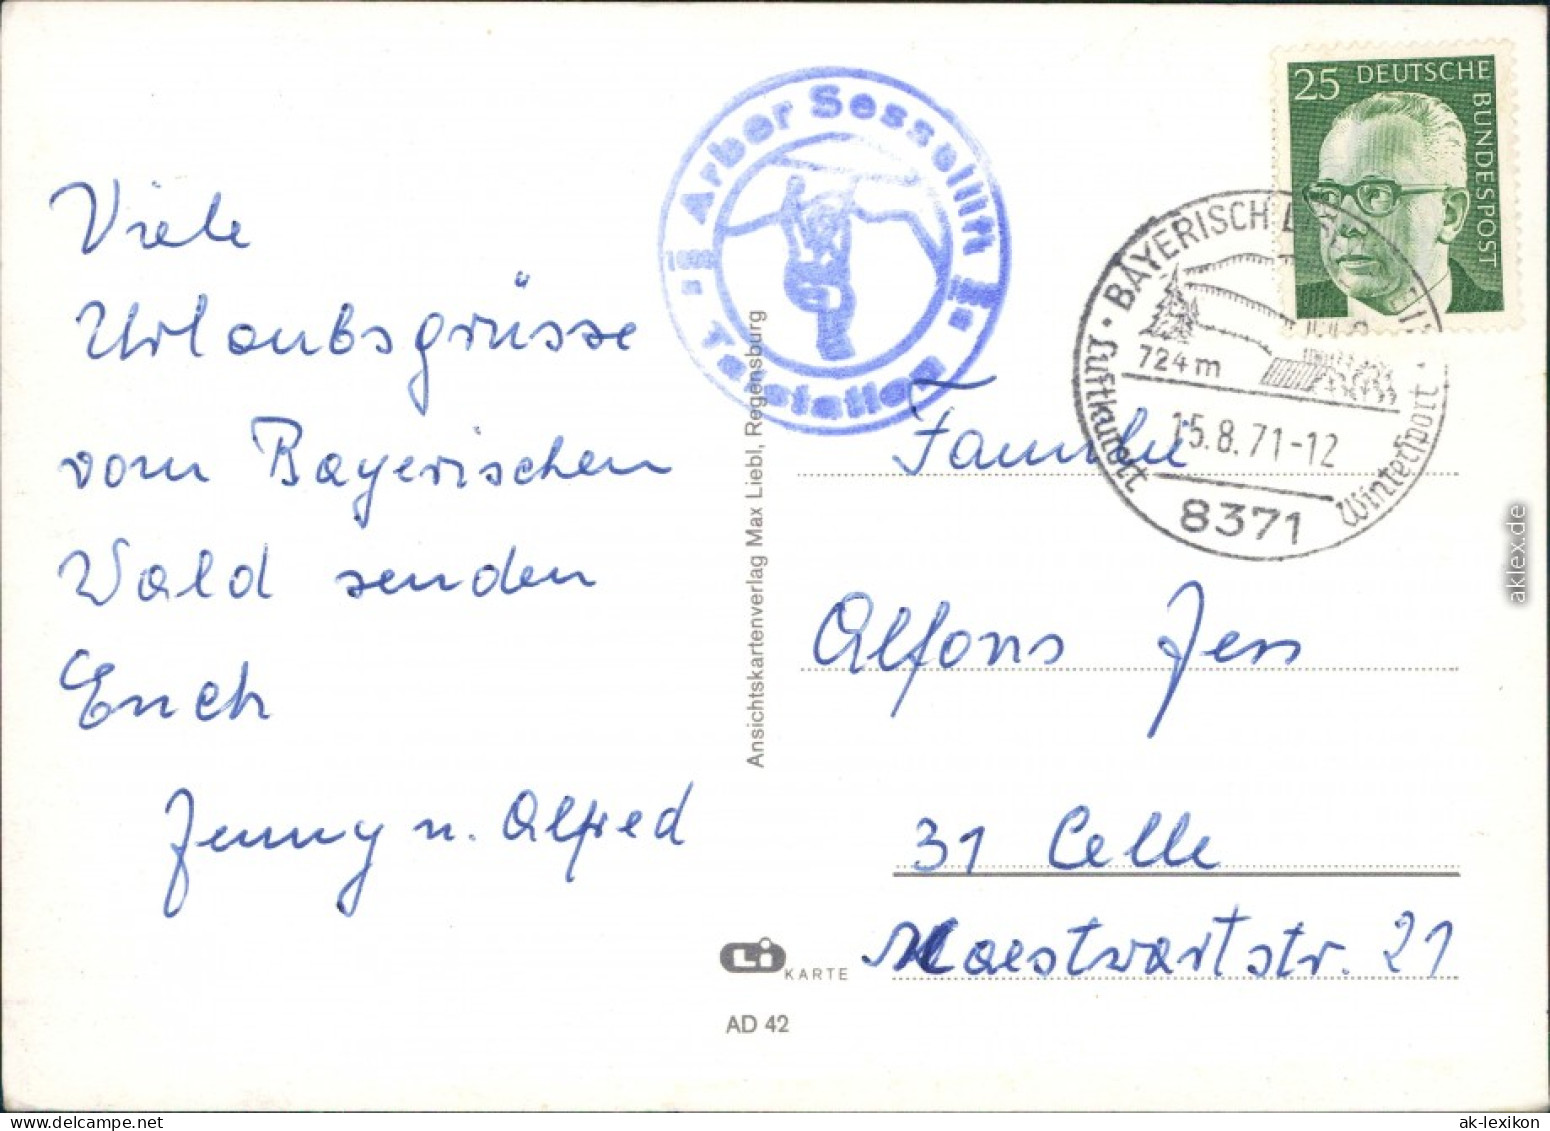 Viele
Urlaubsgrüsse
vom Bayerischen
Wald senden
Euch
Jenny u. Alfred
Arber Sessellift
Talstation
Ansichtskartenverlag Max Liebl, Regensburg
Li
KARTE
AD 42
25 DEUTSCHE
BUNDESPOST
BAYERISCH
Luftkurort
Wintersport
724m
15.8.71-12
8371
Familie
Alfons Jess
31 Celle
21
aklex.de
ak-lexikon
delcampe.net